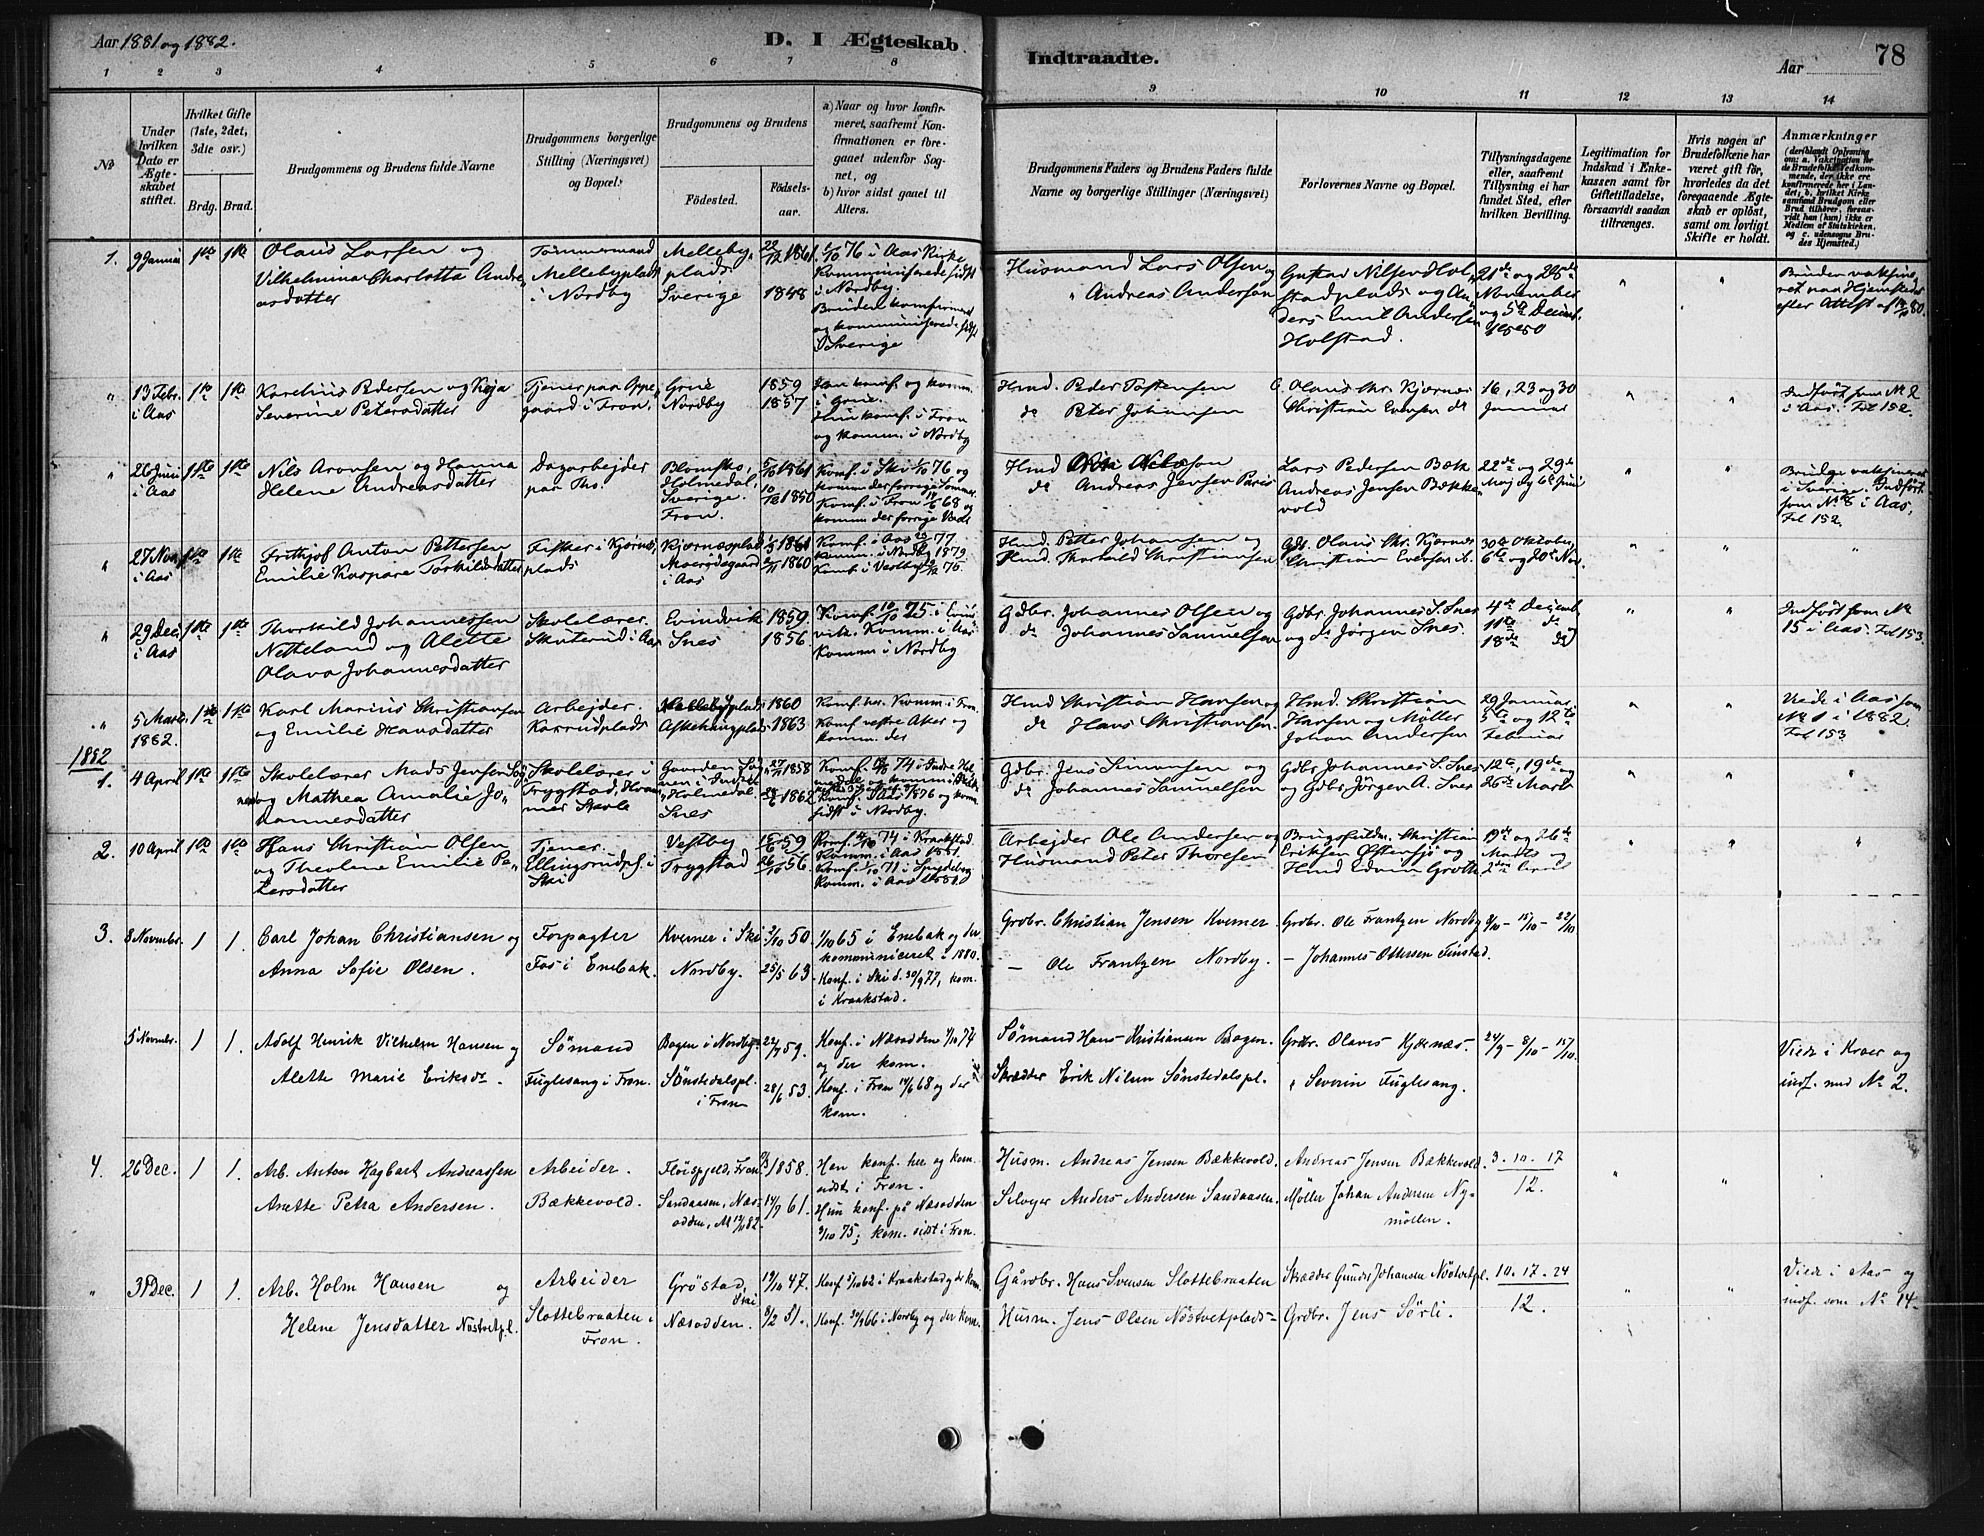 Aar 1881 og 1882.
D. I Ægteskab
Indtraadte.
Aar
78
1 2 3 4 5 6 7 8 9 10 11 12 13 14
№
Under hvilken Dato er Ægteskabet stiftet.
Hvilket Gifte (1ste, 2det, 3die osv.)
Brdg. Brud.
Brudgommens og Brudens fulde Navne
Brudgommens borgerlige Stilling (Næringsvei) og Bopæl.
Brudgommens og Brudens
Födested.
Födselsaar.
a) Naar og hvor konfirmeret, saafremt Konfirmationen er foregaaet udenför Sognet, og
b) hvor sidst gaaet til Alters.
Brudgommens Faders og Brudens Faders fulde Navne og borgerlige Stillinger (Næringsvei)
Forlovernes Navne og Bopæl.
Tillysningsdagene eller, saafremt Tillysning ei har fundet Sted, efter hvilken Bevilling.
Legitimation for Indskud i Enkekassen samt för Giftetilladelse, forsaavidt saadan tiltrænges.
Hvis nogen af Brudefolkene har været gift för, hvorledes da det foregaaende Ægteskab er oplöst, samt om lovligt Skifte er holdt.
Anmærkninger
1. 9 Januar 1ste 1ste
Olaus Larsen og
Vilhelmina Charlotta Andreasdatter
Tømmermand
Mellebyplads
i Nordby
Mellebyplads
Sverige
22/12 1861
1848
/10 76 i Aas Kirke
Kommunicerede sidst
i Nordby.
Bruden konfirmeret
og kommunicerede sidst
i Sverige
Husmand Lars Olsen og
" Andreas Andersen
Gustav Nilsen Holstadplads og Anders Emil Andersen
Holstad.
21de og 25de
November
og 5te Decemb.
1880
Bruden vaksineret paa Hjemstedet
efter Attest af 80.
" 13 Febr. i Aas 1ste 1ste
Karelius Pedersen og Kaja
Severine Petersdatter
Tjener paa Oppegaard i Fron.
Grue
Nordby
1859
1857
Han konf. og komm.
i Grue.
Hun konf. i Fron
og komm. i Nordby
Hmd. Peder Tostensen
do Peter Johansen
G. Olaus Chr. Kjærnes
Christian Evensen do
16, 23 og 30
Januar
Indført som № 2
i Aas. Fol 152.
" 26 Juni i Aas 1ste 1ste
Nils Aronsen og Hanna
Helene Andreasdatter
Dagarbejder
paa Ths.
Blomsks,
Holmedal,
Sverige.
Fron.
1861
1850
Konf. i Ski 76 og
komm der forrige Sommer
Konf. i Fron 68 og
komm der forrige Vaar
Hmd
do Andreas Jensen
Lars Pedersen Bæk
Andreas Jensen Bækkevold
22de og 29de
Maj og 6te Juni
Brudg. vaksineret
i Sverige. Indført
som № 8 i Aas,
Fol 152.
" 27 Nov. i Aas 1ste 1ste
Frithjof Anton Pettersen
Emilie Kaspare Torkildsdatter
Fisker i Kjærnesplads
Kjærnesplads
i Aas
1861
1860
Konf. i Aas 77
komm. i Nordby 1879
Konf. i Vestby 75.
Hmd. Petter Johansen og
Hmd. Thorkild Christiansen
Gdb. Olaus Chr. Kjærnes
Christian Evensen ib.
30te Oktober
6te og 20de Nov.
" 29 Dec. i Aas 1ste 1ste
Thorkild Johannessen
Netteland og Alette
Olava Johannesdatter
Skolelærer.
Skuterud i Aas
Evindvik
Snes
1859
1856
Konf. 10/10 75 i Evindvik. Komm. i Aas
Komm i Nordby
Gdbr. Johannes Olsen og
do Johannes Samuelsen
Gdbr. Johannes S. Snes
og do Jørgen Snes.
4de Decemb
11te do
18de do
Indført som №
15 i Aas. Fol 153.
" 5 Marts 1882. 1ste 1ste
Karl Marius Christiansen
og Emilie Hansdatter
Arbejder.
Karrudplads
Mellebyplads
1860
1863
Konf. her. Komm i Fron.
Konf. vestre Aker og
komm. der
Hmd Christian Hansen og
do Hans Christiansen.
Hmd. Christian
Hansen og Møller
Johan Andersen
29 Januar
5te og 12te
Februar
Viede i Aas som
№ 1 i 1882.
Fol 153
1882
1. 4 April 1ste 1ste
Skolelærer Mads Jensen
og Mathea Amalie Johannesdatter
Skolelærer i
Trygstad,
Skole
Gaarden
i Indre
Holmedal
Snes
27/11 1858
1862
Konf. 74 i Indre Holmedal og komm i
Konf. i Aas 1876 og komm.
sidst i Nordby.
Gdbr. Jens Simonsen og
do Johannes Samuelsen
Gdbr Johannes S. Snes
og Gdbr Jørgen A. Snes
12te, 19de og
26de Marts
2. 10 April 1ste 1ste
Hans Christian Olsen
og Theoline Emilie Petersdatter
Tjener.
Ellingsrudpl. i
Ski
Vestby
Trygstad
59
56
Konf. /10 74 i Kraakstad
Komm. i Aas 1881.
Konf. /10 71 i Spydeberg
Komm. i Aas 1880.
Arbejder Ole Andersen og
Husmand Peter Thoresen
Christian
Eriksen Østensjø og
Hmd Edvin Grøtt
19de og 26de
Marts og
2den April
3. 8 November. 1 1.
Carl Johan Christiansen og
Anna Sofie Olsen.
Forpagter
Fos i Enebak.
Kverner i Ski
Nordby.
2/10 50
25/5 63.
1/10 65 i Enebak og der
kommuniceret i 1880.
Konf. i Ski d. 30/9 77, kom.
i Kraakstad.
Grdbr. Christian Jensen Kverner.
— Ole Frantzen Nordby.
Grdbr. Ole Frantzen Nordby
— Johannes Ottersen Finstad.
8/10 – 15/10 – 22/10
5 Novmbr. 1 1.
Adolf Henrik Vilhelm Hansen og
Alette Marie Eriksdr.
Sömand
Fuglesang i Fron.
Bogen i Nordby
Sønstedalspl.
i Fron
22/7 59.
28/6 53.
Konf. i Næsodden 1/10 74
og der kom.
Konf. i Fron 14/6 68 og der
kom.
Sömand Hans Kristiansen Bogen.
Skrædder Erik Nilsen Sønstedalspl.
Grdbr. Olaves Kjærnæs.
" Severin Fuglesang.
24/9 – 8/10 – 15/10.
Viede i Kroer og
indf. med № 2.
4. 26 Dec. 1 1.
Arb. Anton Hagbart Andreassen
Anette Petra Andersen.
Arbeider.
Bækkevold.
Fløispjeld, Fron
Sandaasen, Næsodden,
1858.
14/7 61.
Han konf. her og kom.
sidst i Fron.
Hun konf. på Næsodden
3/10 75; kom. sidst i Fron.
Husm. Andreas Jensen Bækkevold.
Selveier Anders Andersen Sandaasen.
Andreas Jensen Bækkevold.
Møller Johan Andersen Nymöllen.
3. 10. 17
12.
" 31 Dec. 1 1.
Arb. Holm Hansen og
Helene Jensdatter Nøstvetpl.
Arbeider
Slottebraaten i
Fron.
Gröstad,
Ski
Næsodden.
19/10 47.
8/2 51.
Konf 5/10 62 i Kraakstad og der kom.
Konf. 30/9 66 i Nordby og der kom.
Gårdbr. Hans Svensen Slottebraaten
Husm. Jens Olsen Nöstvetplads
Skrædder Gunder Johansen Nöstvetpl.
Grdbr. Jens Sörli.
10. 17. 24
12.
Viede i Aas og
indf. som № 14